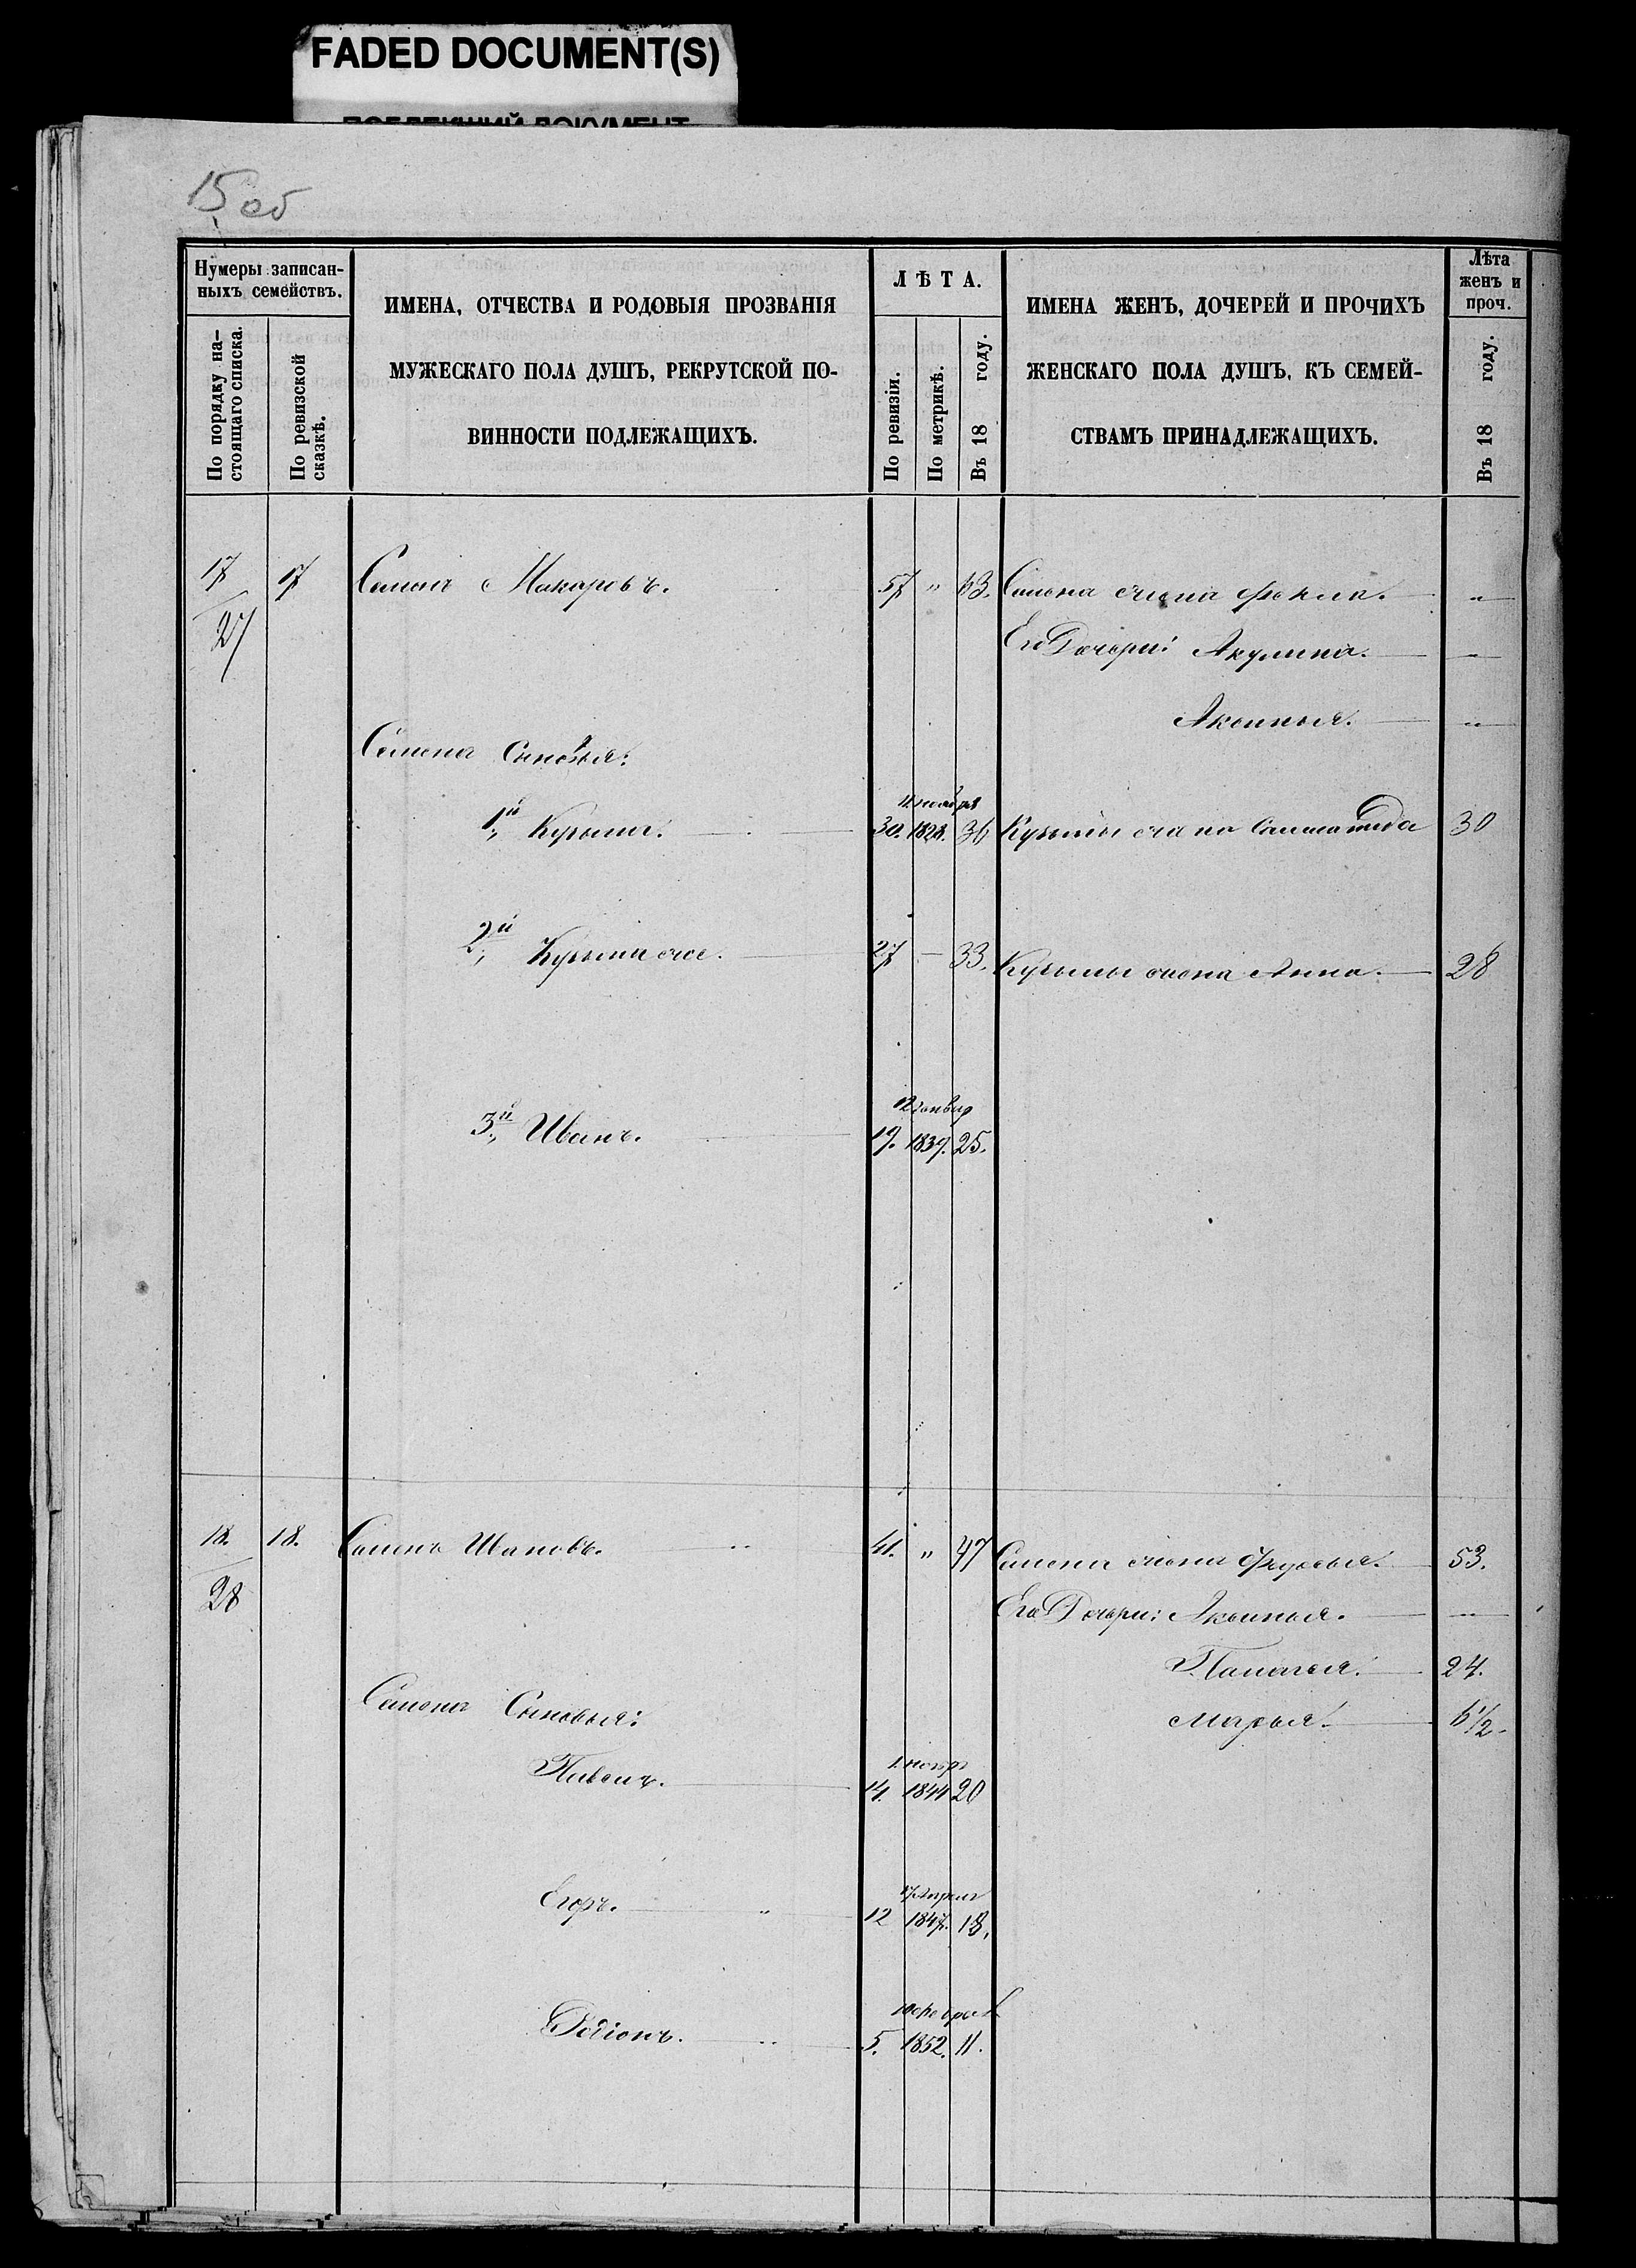 FADED DOCUMENT(S)
15 об
Нумеры записан-
ныхъ семействъ.
По порядку на-
стоящаго списка.
По ревизской
сказкѣ.
ИМЕНА, ОТЧЕСТВА И РОДОВЫЯ ПРОЗВАНІЯ
МУЖЕСКАГО ПОЛА ДУШЪ, РЕКРУТСКОЙ ПО-
ВИННОСТИ ПОДЛЕЖАЩИХЪ.
ЛѢТА.
По ревизіи.
По метрикѣ.
Въ 18 году.
ИМЕНА ЖЕНЪ, ДОЧЕРЕЙ И ПРОЧИХЪ
ЖЕНСКАГО ПОЛА ДУШЪ, КЪ СЕМЕЙ-
СТВАМЪ ПРИНАДЛЕЖАЩИХЪ.
Лѣта
женъ и
проч.
Въ 18 году.
17 17 Семенъ Макаровъ. 57 " 63. Семена жена Фекла. "
27 Его Дочери: Акулина. "
Аксинья. "
Семена Сыновья:
11 ноября
1й Кузьма. 30. 1828. 36 Кузьмы жена 30
2й Кузьма же. 27 — 33. Кузьмы жена Анна. 28
12 январ
3й Иванъ. 19. 1839. 25.
18. 18. Семенъ Ивановъ. 41. " 47 Семена жена Федосья. 53.
28 Его Дочери: Аксинья. "
Палагея. 24.
Семена Сыновья: Марья. 6½.
1 ноябр
Пименъ. 14. 1844 20
17 Апреля
Егоръ. 12 1847. 18.
10 февраля
Родіонъ. 5. 1852. 11.